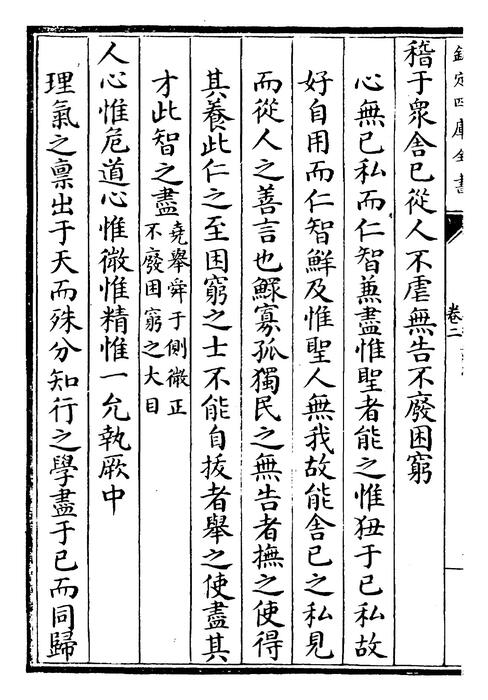 欽定四庫全書
卷二
稽于衆舍已從人不虐無告不廢困窮
心無已私而仁智兼盡惟聖者能之惟狃于已私故
好自用而仁智鮮及惟聖人無我故能舍已之私見
而從人之善言也鰥寡孤獨民之無告者撫之使得
其養此仁之至困窮之士不能自拔者舉之使盡其
才此智之盡堯舉舜于側微正
不廢困窮之大目
人心惟危道心惟微惟精惟一允執厥中
理氣之禀出于天而殊分知行之學盡于已而同歸